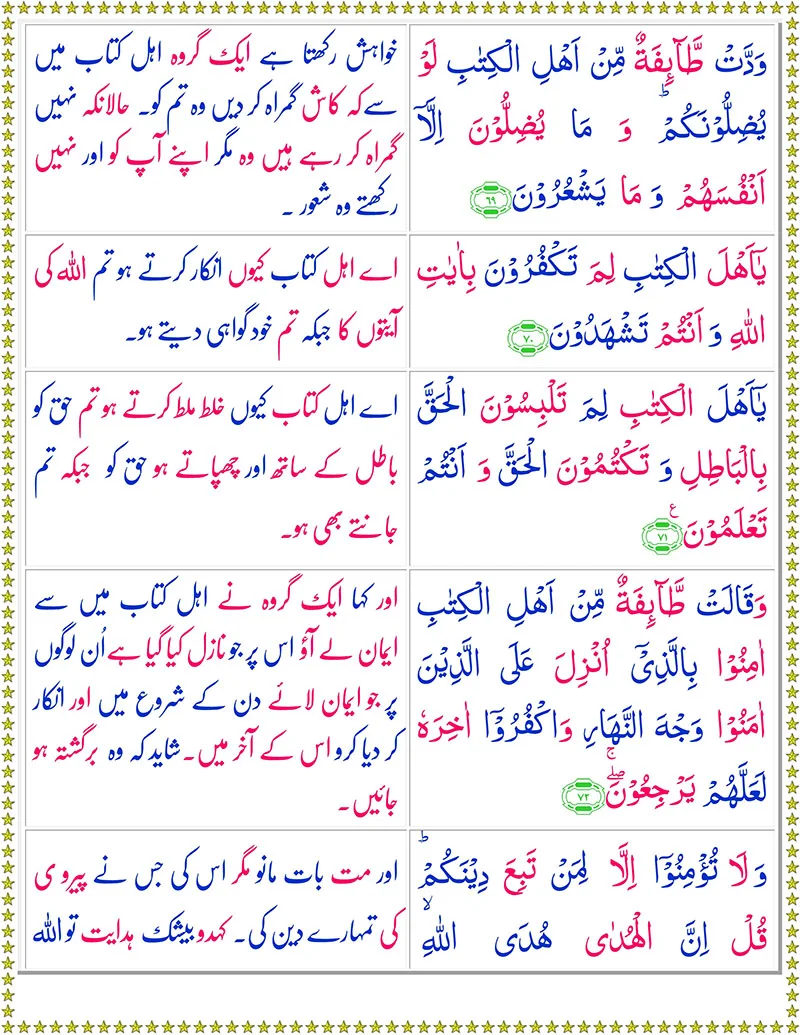 وَدَّتْ طَّآىِٕفَةٌ مِّنْ اَهْلِ الْكِتٰبِ لَوْ
یُضِلُّوْنَكُمْ ؕ وَ مَا یُضِلُّوْنَ اِلَّاۤ
اَنْفُسَهُمْ وَ مَا یَشْعُرُوْنَ ﴿۶۹﴾
خواہش رکھتا ہے ایک گروہ اہل کتاب میں
سےکہ کاش گمراہ کر دیں وہ تم کو۔ حالانکہ نہیں
گمراہ کر رہے ہیں وہ مگر اپنے آپ کو اور نہیں
رکھتے وہ شعور ۔
یٰۤاَهْلَ الْكِتٰبِ لِمَ تَكْفُرُوْنَ بِاٰیٰتِ
اللّٰهِ وَ اَنْتُمْ تَشْهَدُوْنَ ﴿۷۰﴾
اے اہل کتاب کیوں انکار کرتے ہو تم اللہ کی
آیتوں کا جبکہ تم خود گواہی دیتے ہو۔
یٰۤاَهْلَ الْكِتٰبِ لِمَ تَلْبِسُوْنَ الْحَقَّ
بِالْبَاطِلِ وَ تَكْتُمُوْنَ الْحَقَّ وَ اَنْتُمْ
تَعْلَمُوْنَ ﴿۷۱﴾ ع
اے اہل کتاب کیوں غلط ملط کرتے ہو تم حق کو
باطل کے ساتھ اور چھپاتے ہو حق کو جبکہ تم
جانتے بھی ہو۔
وَقَالَتْ طَّآىِٕفَةٌ مِّنْ اَهْلِ الْكِتٰبِ
اٰمِنُوْا بِالَّذِیْۤ اُنْزِلَ عَلَی الَّذِیْنَ
اٰمَنُوْا وَجْهَ النَّهَارِ وَاكْفُرُوْۤا اٰخِرَهٗ
لَعَلَّهُمْ یَرْجِعُوْنَ ۚۖ ﴿۷۲﴾
اور کہا ایک گروہ نے اہل کتاب میں سے
ایمان لے آؤ اس پر جو نازل کیا گیا ہے اُن لوگوں
پر جو ایمان لائے دن کے شروع میں اور انکار
کر دیا کرو اس کے آخر میں۔ شاید کہ وہ برگشتہ ہو
جائیں۔
وَ لَا تُؤْمِنُوْۤا اِلَّا لِمَنْ تَبِعَ دِیْنَكُمْ ؕ
قُلْ اِنَّ الْهُدٰی هُدَی اللّٰهِ ۙ
اور مت بات مانو مگر اس کی جس نے پیروی
کی تمہارے دین کی۔ کہدو بیشک ہدایت تو اللہ